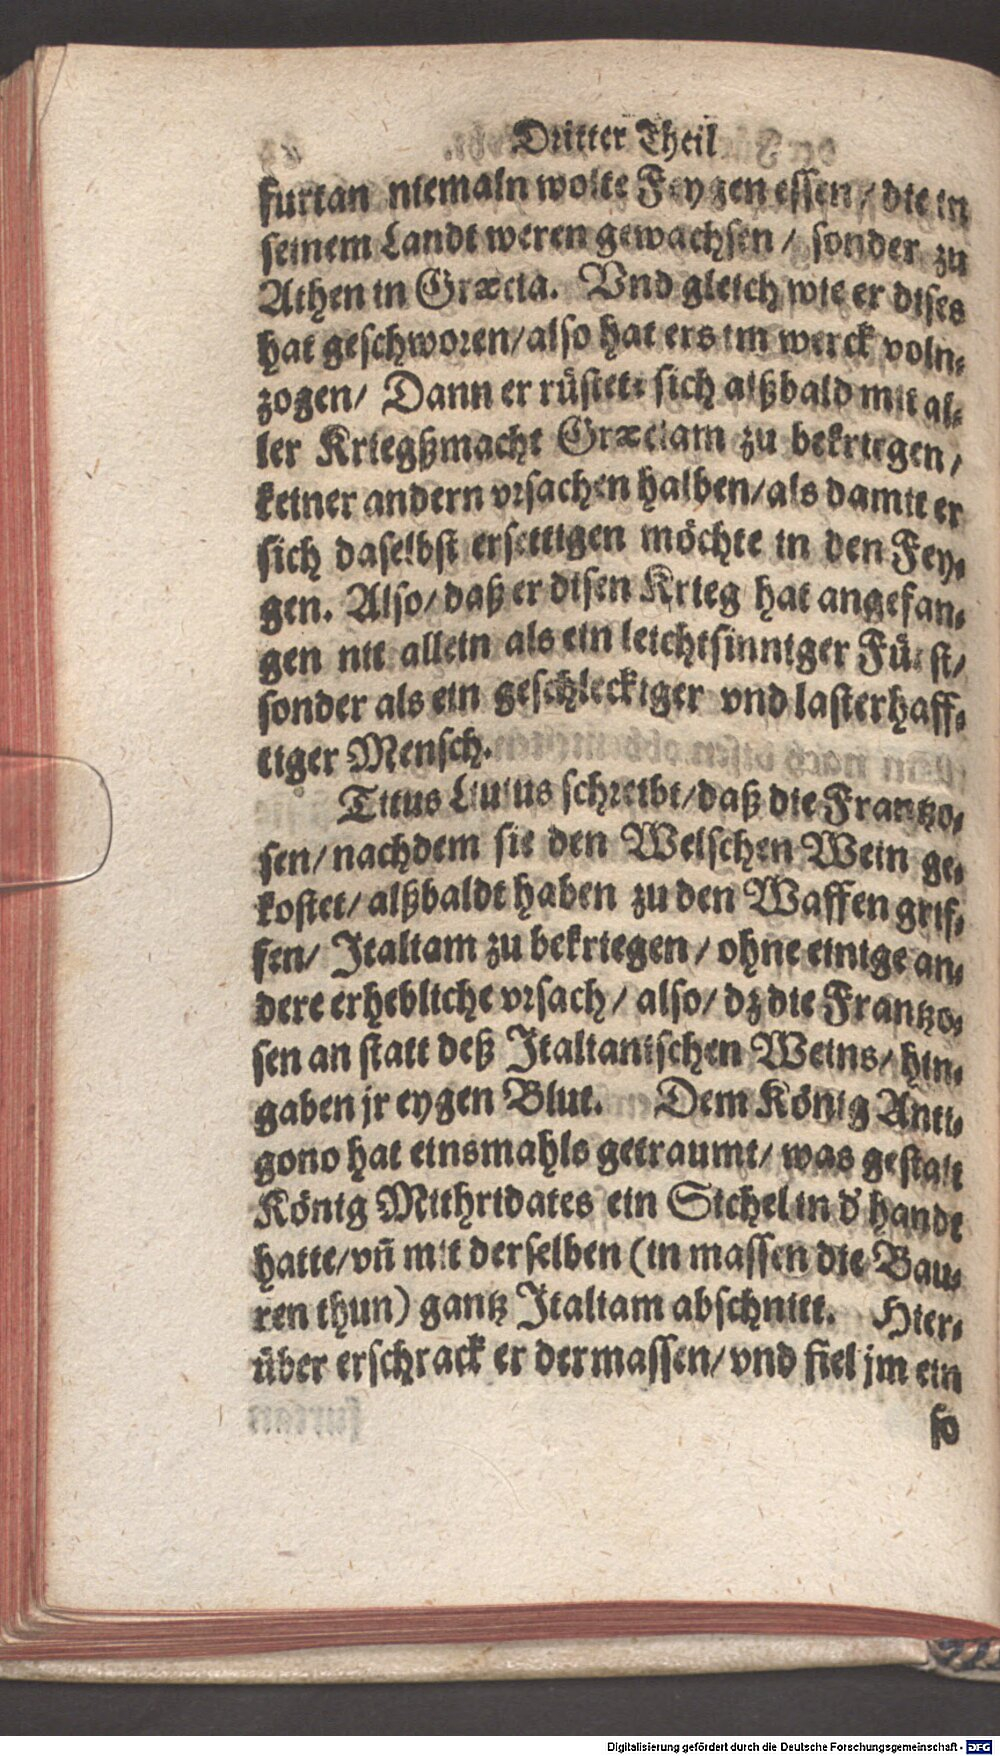 Dritter Theil
furtan niemaln wolte Feygen essen / die in
seinem Landt weren gewachsen / sonder zu
Athen in Græcia. Vnd gleich wie er dises
hat geschworen/also hat ers im werck voln-
zogen/ Dann er rüstete sich alßbald mit al-
ler Kriegßmacht Græciam zu bekriegen /
keiner andern vrsachen halben/als damit er
sich daselbst ersettigen möchte in den Fey-
gen. Also/daß er disen Krieg hat angefan-
gen nit allein als ein leichtsinniger Fürst/
sonder als ein geschleckiger vnd lasterhaff-
tiger Mensch.
Titus Liuius schreibt/daß die Frantzo-
sen/nachdem sie den Welschen Wein ge-
kostet/alßbaldt haben zu den Waffen grif-
fen/ Italiam zu bekriegen / ohne einige an-
dere erhebliche vrsach / also/ dz die Frantzo-
sen an statt deß Italianischen Weins/ hin-
gaben jr eygen Blut. Dem König Anti-
gono hat einsmahls getraumt/ was gestalt
König Mithridates ein Sichel in d' handt
hatte/vñ mit derselben (in massen die Bau-
ren thun) gantz Italiam abschnitt. Hier-
über erschrack er dermassen/vnd fiel jm ein
so
Digitalisierung gefördert durch die Deutsche Forschungsgemeinschaft - DFG